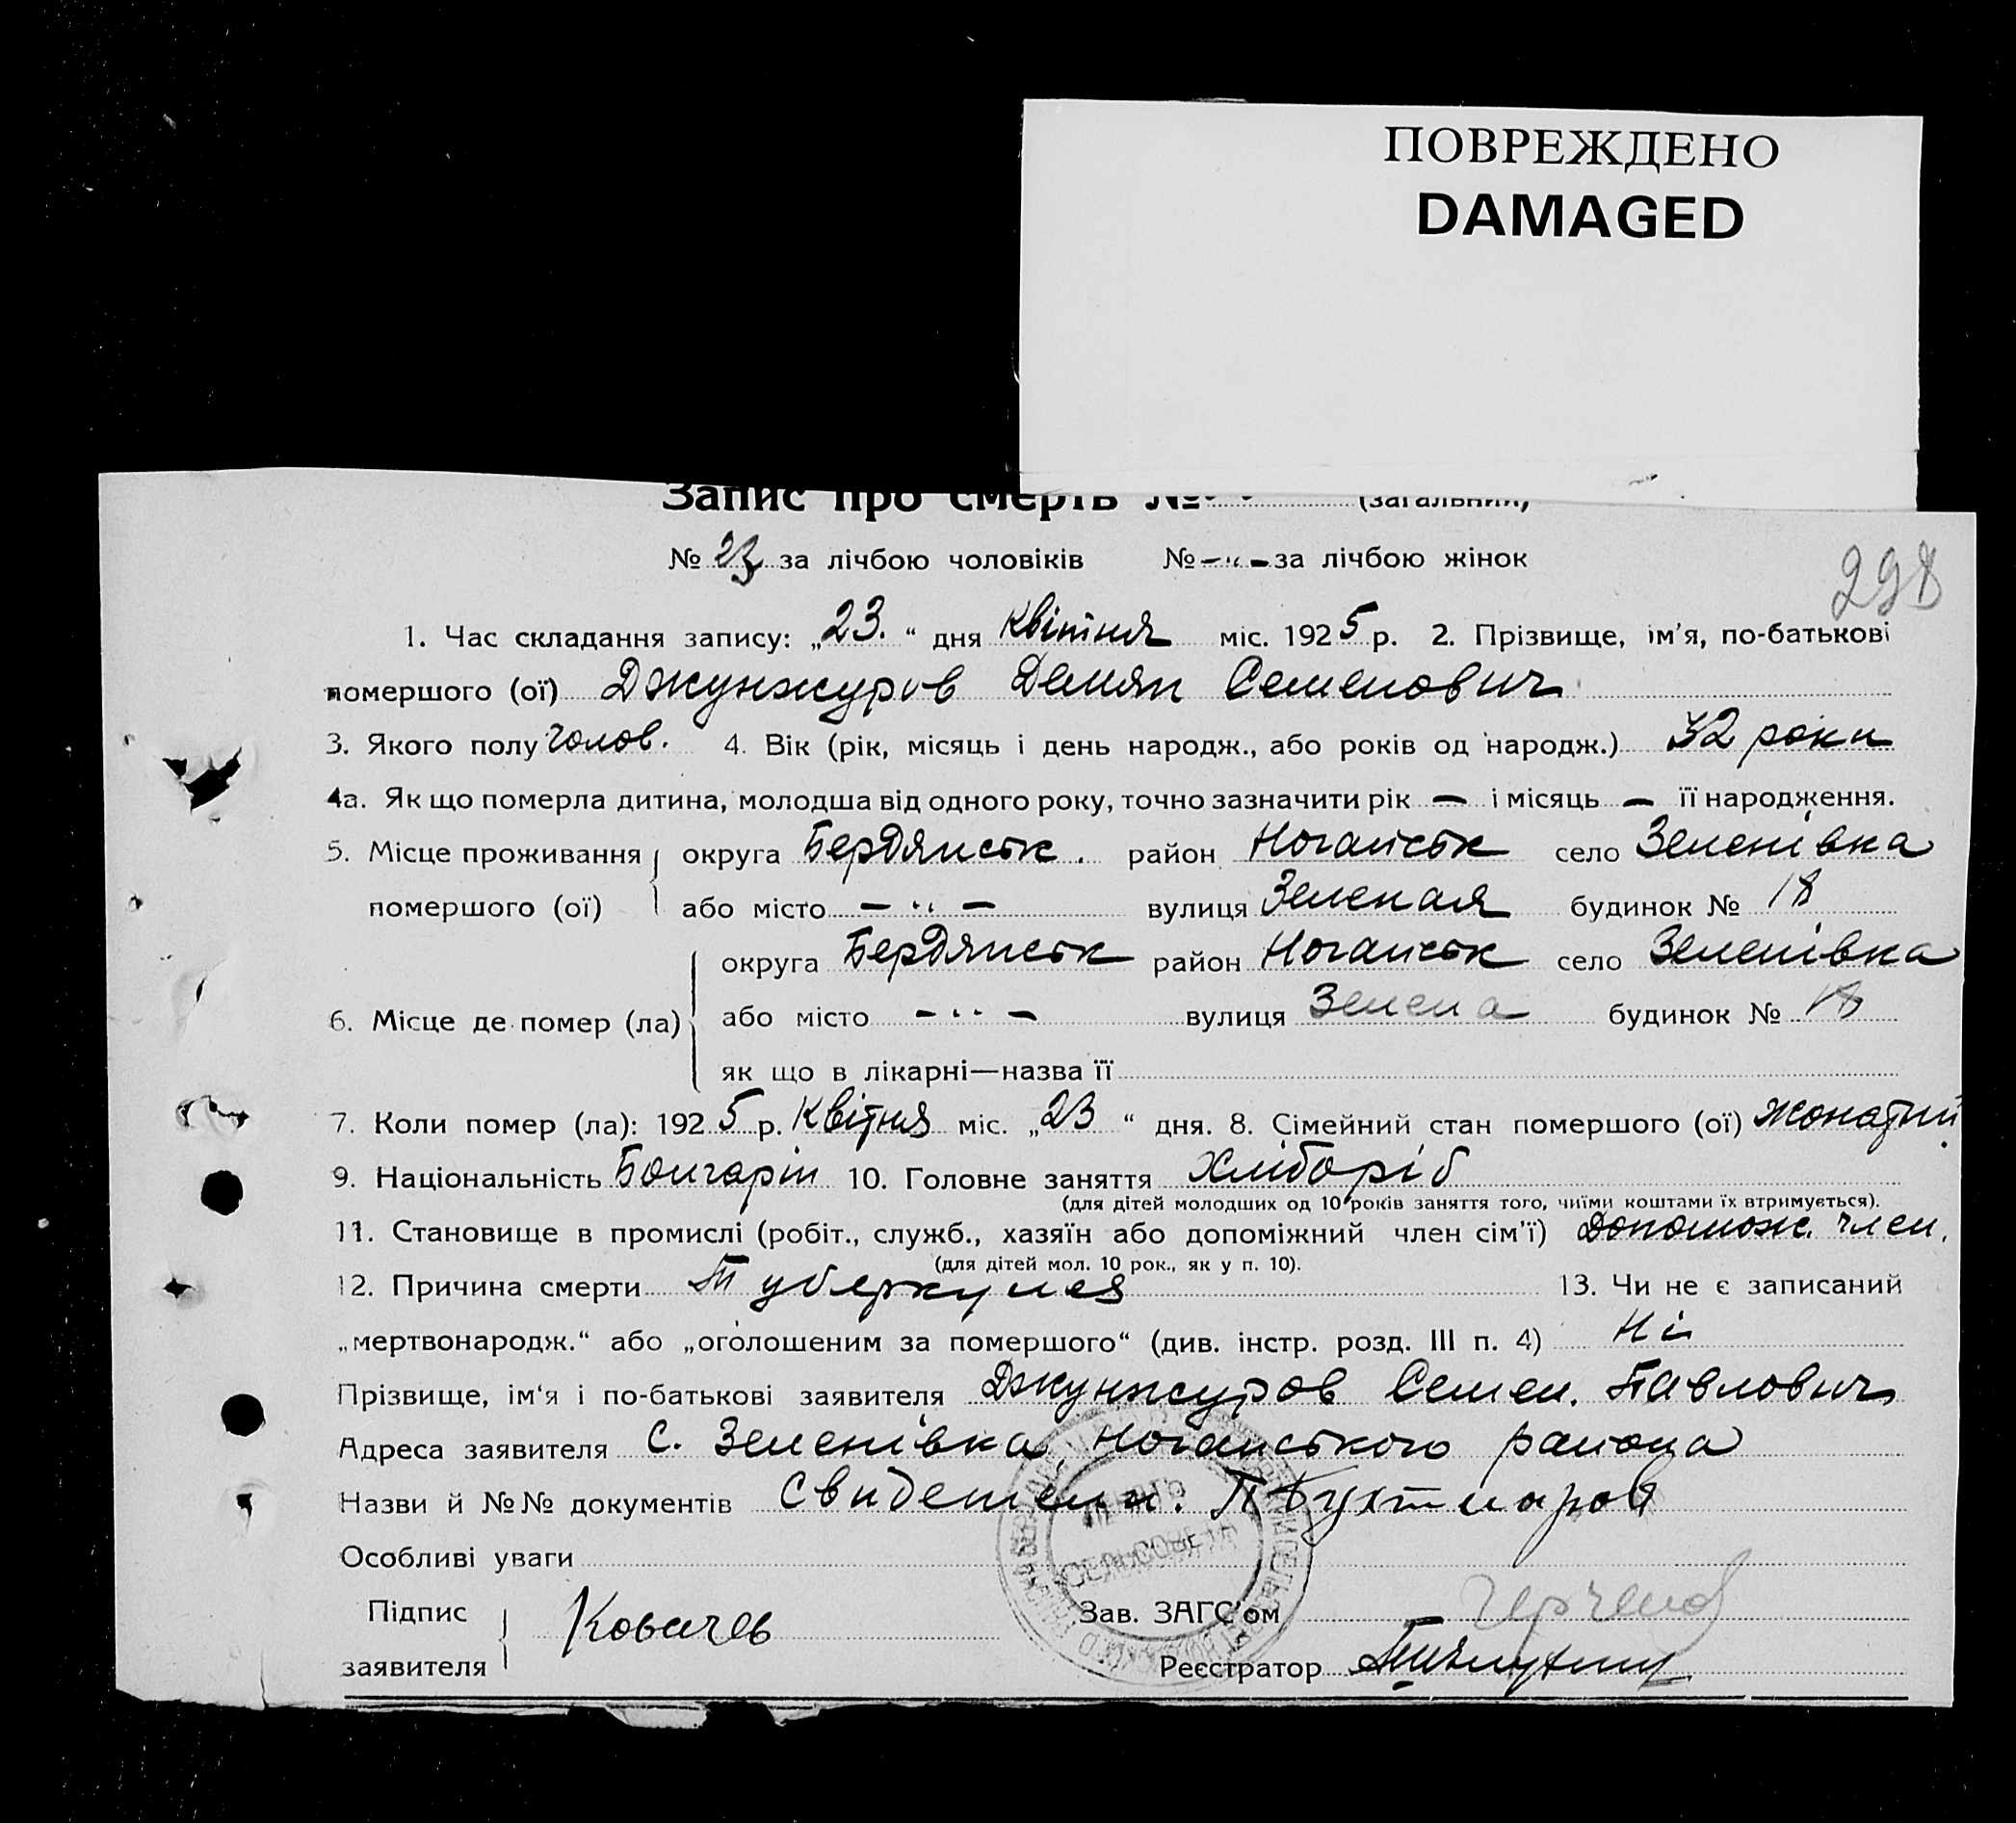 ПОВРЕЖДЕНО
DAMAGED
Запис про смерть № (загальний)
№ 23 за лічбою чоловіків № -"- за лічбою жінок
298
1. Час складання запису: „23.“ дня Квітня міс. 1925 р. 2. Прізвище, ім'я, по-батькові
помершого (ої) Джунжуров Демян Семенович
3. Якого полу чолов. 4. Вік (рік, місяць і день народж., або років од народж.) 32 роки
4а. Як що померла дитина, молодша від одного року, точно зазначити рік — і місяць — її народження.
5. Місце проживання округа Бердянськ. район Ногайськ село Зеленівка
помершого (ої) або місто — " — вулиця Зеленая будинок № 18
округа Бердянськ район Ногайськ село Зеленівка
6. Місце де помер (ла) або місто — " — вулиця Зелена будинок № 18
як що в лікарні—назва її
7. Коли помер (ла): 1925 р. Квітня міс. „23“ дня. 8. Сімейний стан помершого (ої) Жонатий
9. Національність Болгарін 10. Головне заняття Хлібороб
(для дітей молодших од 10 років заняття того, чиїми коштами їх втримується).
11. Становище в промислі (робіт., служб., хазяїн або допоміжний член сім'ї) Допомож. член.
(для дітей мол. 10 рок., як у п. 10).
12. Причина смерти Туберкулез 13. Чи не є записаний
„мертвонародж.“ або „оголошеним за помершого“ (див. інстр. розд. III п. 4) Ні
Прізвище, ім'я і по-батькові заявителя Джунжуров Семен. Павлович
Адреса заявителя с. Зеленівка Ногайського района
Назви й №№ документів Свидетели. П Бухтияров
СЕЛЬСОВЕТА
Особливі уваги
Підпис заявителя Ковачев Зав. ЗАГС'ом
Реєстратор